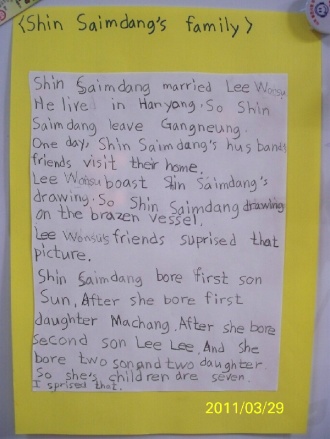 <Shin Saimdang's family>
Shin Saimdang married Lee Wonsu
He live in Hanyang. So Shin
Saimdang leave Gangneung.
One day, Shin Saimdang's husband's
friends visit their home.
Lee Wonsu boast Shin Saimdang's
drawing. So Shin Saimdang drawing
on the brazen vessel.
Lee Wonsu's friends suprised that
picture.
Shin Saimdang bore first son
Sun. After she bore first
daughter Machang. After she bore
second son Lee Lee. And she
bore two son and two daughter
So she's children are seven.
I sprised that.
2011/03/29